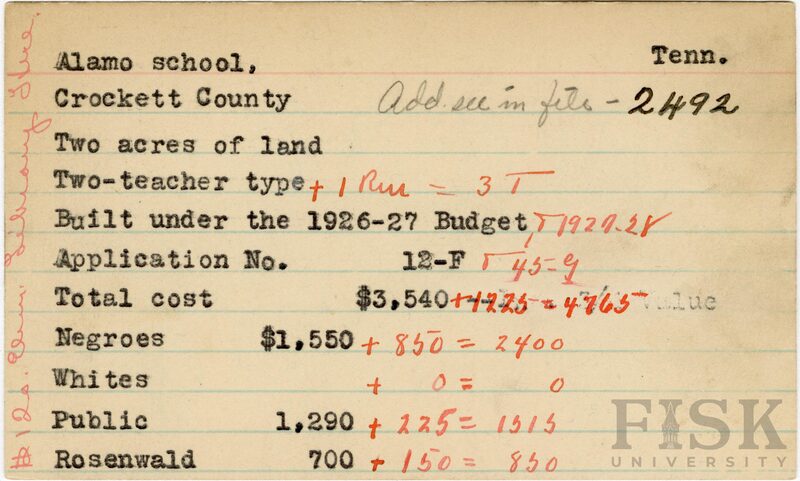 Alamo school, Tenn.
Crockett County Add. see in file - 2492
Two acres of land
Two-teacher type + 1 Rm = 3 T
Built under the 1926-27 Budget, + 1927-28
Application No. 12-F + 45-g
Total cost $3,540 + 1225 = 4765 Value
Negroes $1,550 + 850 = 2400
Whites + 0 = 0
Public 1,290 + 225 = 1515
Rosenwald 700 + 150 = 850
$120. Elem. Library here.
FISK
UNIVERSITY